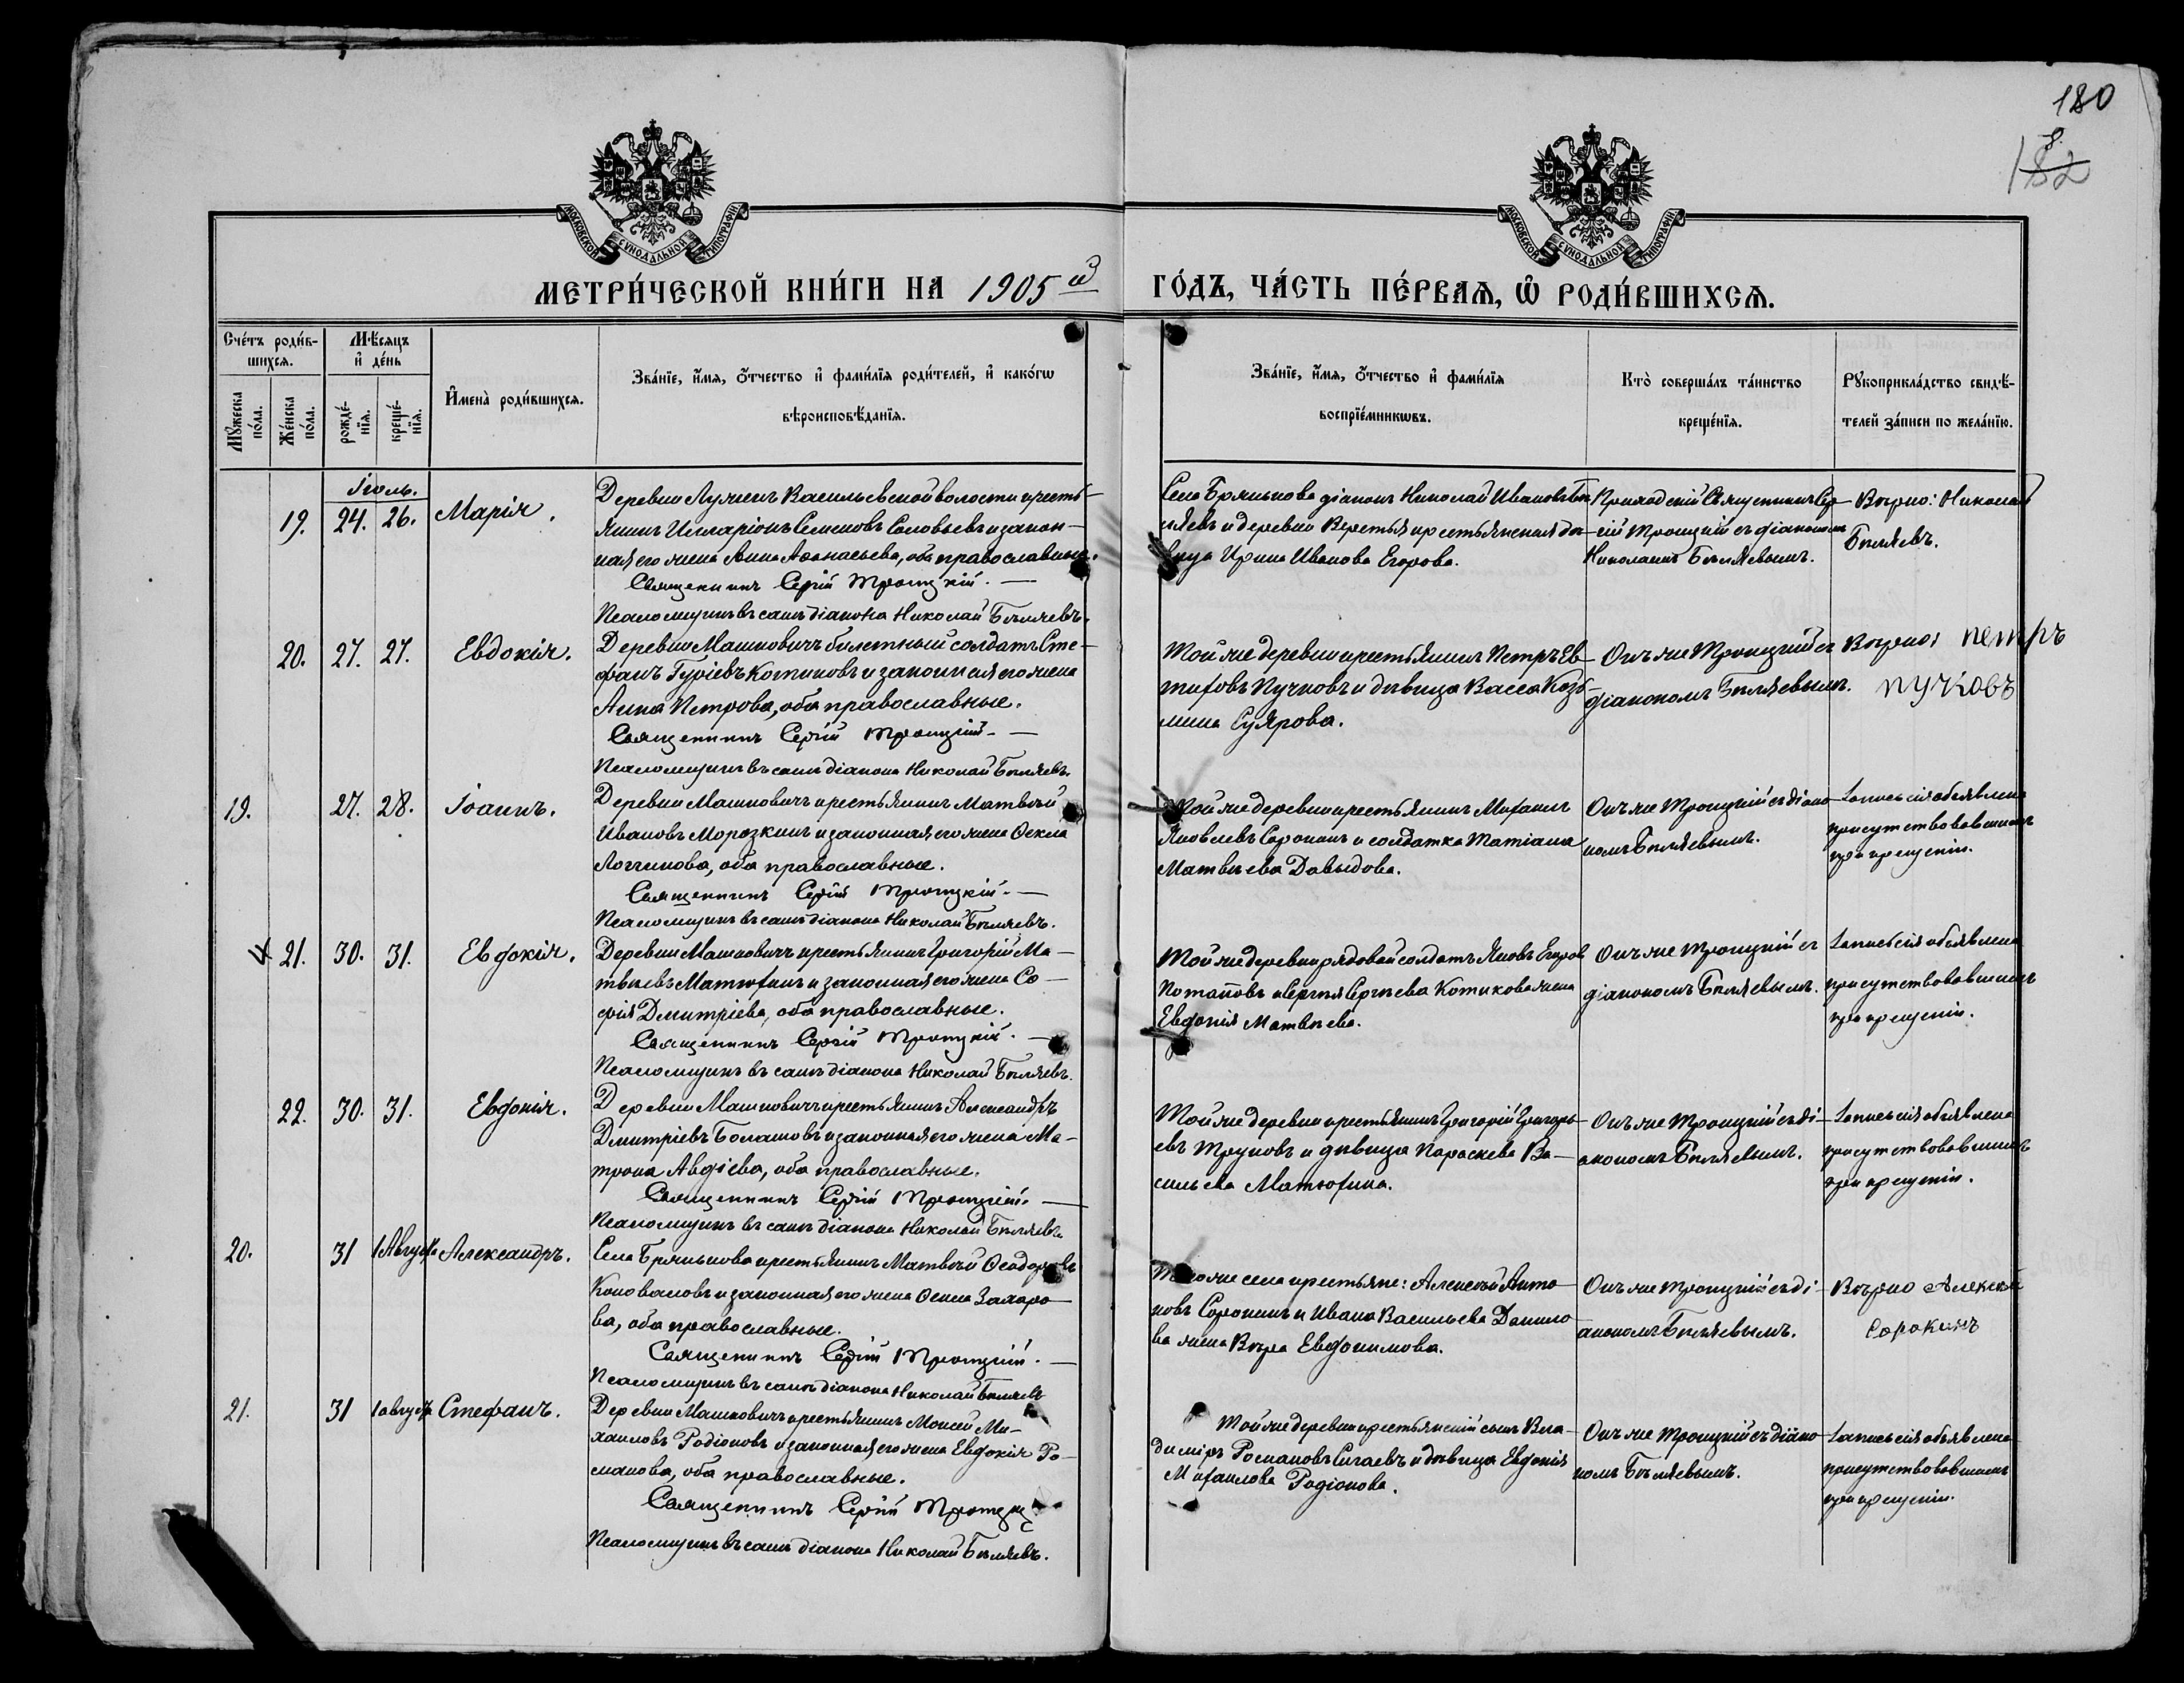 180
182
МОСКОВСКОЙ СѴНОДАЛЬНОЙ ТИПОГРАФІИ
МОСКОВСКОЙ СѴНОДАЛЬНОЙ ТИПОГРАФІИ
МЕТРИ́ЧЕСКОЙ КНИ́ГИ НА 1905 й ГО́ДЪ, ЧА́СТЬ ПЕ́РВАѦ, Ѡ҆ РОДИ́ВШИХСѦ.
Сче́тъ роди́в-
шихсѧ.
Мѣ́сяцъ
и҆ де́нь
Мꙋ́жеска
по́ла.
Же́нска
по́ла.
рожде́-
нїѧ.
креще́-
нїѧ.
И҆мена̀ роди́вшихсѧ.
Зва́нїе, и҆́мѧ, ѻ҆́тчество и҆ фами́лїѧ роди́телей, и҆ како́гѡ
вѣроисповѣ́данїѧ.
Зва́нїе, и҆́мѧ, ѻ҆́тчество и҆ фами́лїѧ
воспрїе́мникѡвъ.
Кто̀ соверша́лъ та́инство
креще́нїѧ.
Рꙋкоприкла́дство свидѣ́-
телей за́писи по жела́нїю.
Іюль.
19. 24. 26. Марія.
Деревни Лужекъ Васильевской волости кресть-
янинъ Илларіонъ Семеновъ Соловьевъ и закон-
ная его жена Анна Аѳанасьева, оба православные.
Священникъ Сергій Троицкій.
Псаломщикъ въ санѣ діакона Николай Бѣляевъ.
Села Брянькова діаконъ Николай Ивановъ Бѣ-
ляевъ и деревни Веретья крестьянская дѣ-
вица Ирина Иванова Егорова.
Приходскій Священникъ Сер-
гій Троицкій съ діакономъ
Николаемъ Бѣляевымъ.
Вѣрно: Николай
Бѣляевъ.
20. 27. 27. Евдокія.
Деревни Машковичъ билетный солдатъ Сте-
фанъ Гуріевъ Котиковъ и законная его жена
Анна Петрова, оба православные.
Священникъ Сергій Троицкій.
Псаломщикъ въ санѣ діакона Николай Бѣляевъ.
Той же деревни крестьянинъ Петръ Ев-
тиховъ Пучковъ и дѣвица Васса Козь-
мина Суярова.
Онъ же Троицкій съ
діакономъ Бѣляевымъ.
Вѣрно: петръ
пучковъ
19. 27. 28. Іоаннъ.
Деревни Машковичъ крестьянинъ Матвѣй
Ивановъ Морозкинъ и законная его жена Ѳекла
Логгинова, оба православные.
Священникъ Сергій Троицкій.
Псаломщикъ въ санѣ діакона Николай Бѣляевъ.
Той же деревни крестьянинъ Михаилъ
Яковлевъ Сорокинъ и солдатка Татіана
Матвѣева Давыдова.
Онъ же Троицкій съ діако-
номъ Бѣляевымъ.
Запись сія объявлена
присутствовавшимъ
при крещеніи.
21. 30. 31. Евдокія.
Деревни Машковичъ крестьянинъ Григорій Ма-
твѣевъ Матюхинъ и законная его жена Со-
фія Дмитріева, оба православные.
Священникъ Сергій Троицкій.
Псаломщикъ въ санѣ діакона Николай Бѣляевъ.
Той же деревни рядовой солдатъ Яковъ Егоровъ
Потаповъ и Сергѣя Сергѣева Котикова жена
Евдокія Матвѣева.
Онъ же Троицкій съ
діакономъ Бѣляевымъ.
Запись сія объявлена
присутствовавшимъ
при крещеніи.
22. 30. 31. Евдокія.
Деревни Машковичъ крестьянинъ Александръ
Дмитріевъ Болашовъ и законная его жена Ма-
трона Авдіева, оба православные.
Священникъ Сергій Троицкій.
Псаломщикъ въ санѣ діакона Николай Бѣляевъ
Той же деревни крестьянинъ Григорій Григорь-
евъ Труновъ и дѣвица Параскева Ва-
сильева Матюхина.
Онъ же Троицкій съ ді-
акономъ Бѣляевымъ.
Запись сія объявлена
присутствовавшимъ
при крещеніи.
20. 31 1 Августа Александръ.
Села Брянькова крестьянинъ Матвѣй Ѳеодоровъ
Коноваловъ и законная его жена Ѳекла Захаро-
ва, оба православные.
Священникъ Сергій Троицкій.
Псаломщикъ въ санѣ діакона Николай Бѣляевъ
Того же села крестьяне: Алексѣй Анто-
новъ Сорокинъ и Ивана Васильева Данило-
ва жена Вѣра Евдокимова.
Онъ же Троицкій съ ді-
акономъ Бѣляевымъ.
Вѣрно Алексей
Сорокинъ
21. 31 1 августа Стефанъ.
Деревни Машковичъ крестьянинъ Моисей Ми-
хаиловъ Родіоновъ и законная его жена Евдокія Ро-
манова, оба православные.
Священникъ Сергій Троицкій
Псаломщикъ въ санѣ діакона Николай Бѣляевъ.
Той же деревни крестьянскій сынъ Вла-
диміръ Романовъ Сигаевъ и дѣвица Евдокія
Михаилова Родіонова.
Онъ же Троицкій съ діако-
номъ Бѣляевымъ.
Запись сія объявлена
присутствовавшимъ
при крещеніи.